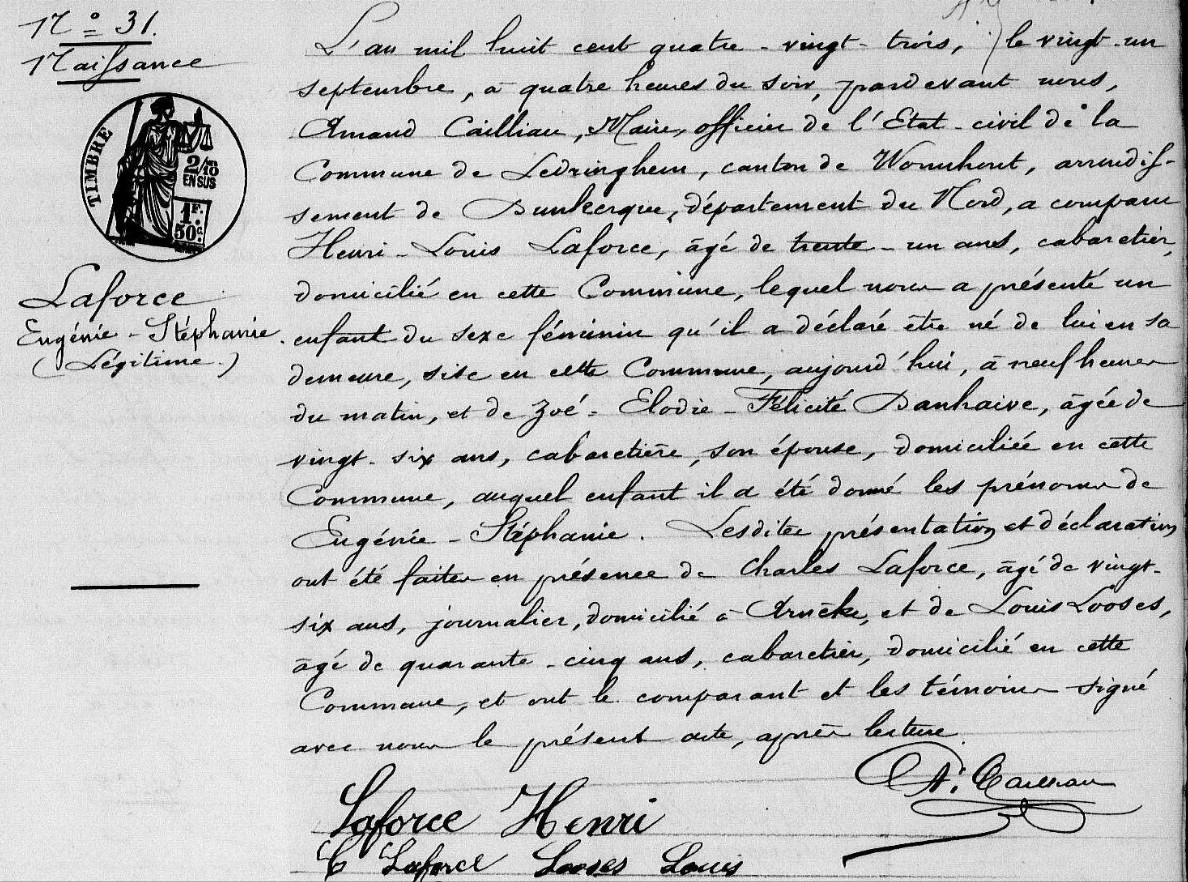 N° 31.
Naissance
TIMBRE
2/10
EN SUS
1 F.
50 c.
Laforce
Eugénie - Stéphanie.
(Légitime.)
L'an mil huit cent quatre - vingt - trois, le vingt - un
septembre, à quatre heures du soir, pardevant nous,
Amand Cailliau, Maire, officier de l'Etat - civil de la
Commune de Ledringhem, canton de Wormhout, arrondis-
sement de Dunkerque, département du Nord, a comparu
Henri - Louis Laforce, âgé de trente - un ans, cabaretier,
domicilié en cette Commune, lequel nous a présenté un
enfant du sexe féminin qu'il a déclaré être né de lui en sa
demeure, sise en cette Commune, aujourd'hui, à neuf heures
du matin, et de Zoé - Elodie - Félicité Danhaive, âgée de
vingt - six ans, cabaretière, son épouse, domiciliée en cette
Commune, auquel enfant il a été donné les prénoms de
Eugénie - Stéphanie. Lesdites présentation et déclaration
ont été faites en présence de Charles Laforce, âgé de vingt-
six ans, journalier, domicilié à Arnèke, et de Louis Looses,
âgé de quarante - cinq ans, cabaretier, domicilié en cette
Commune, et ont le comparant et les témoins signé
avec nous le présent acte, après lecture.
A. Cailliau
Laforce Henri
C Laforce Looses Louis